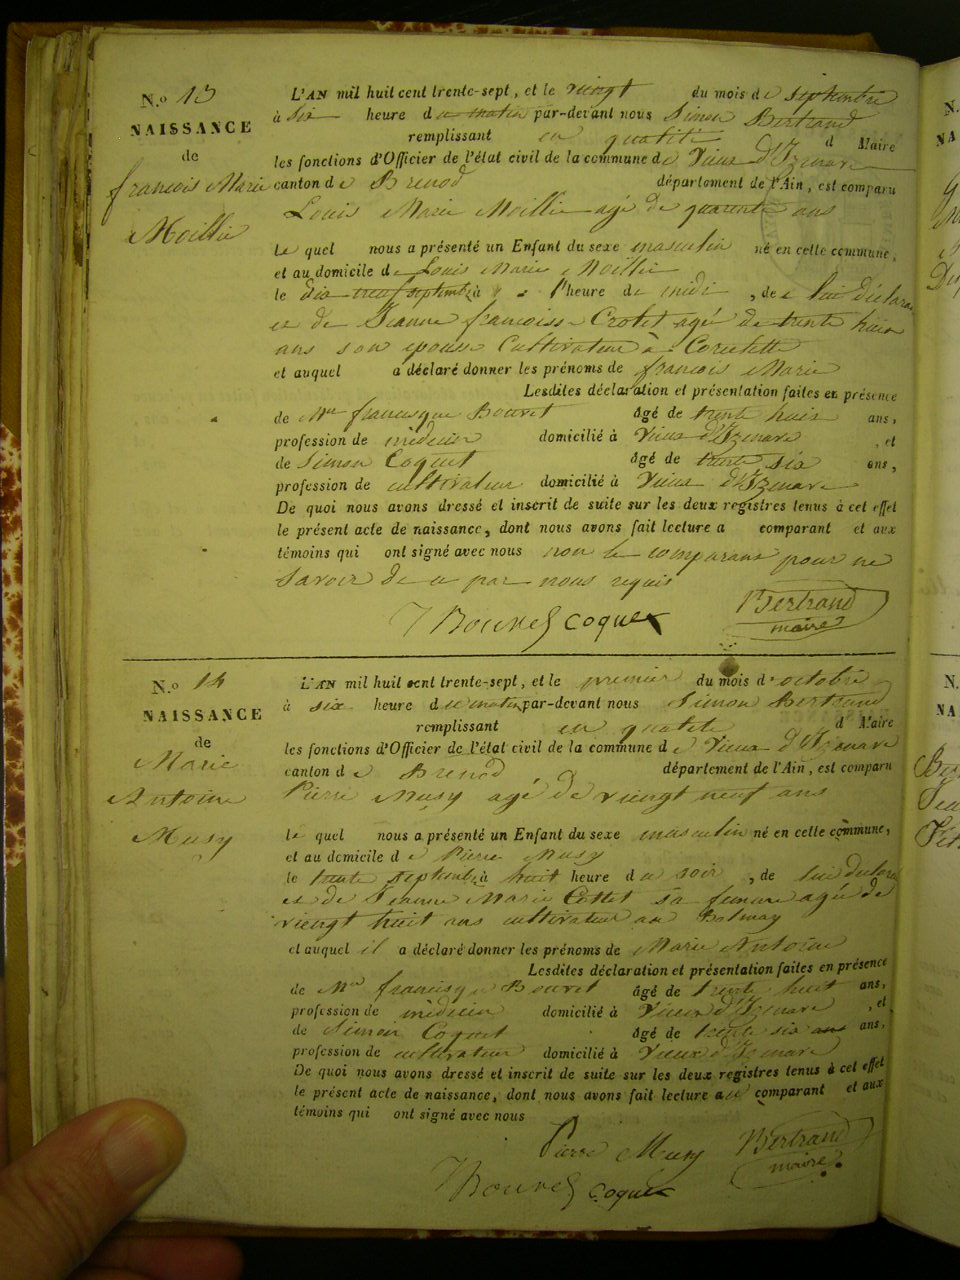 N.o 13
NAISSANCE
de
françois Marie
Moillie
L'AN mil huit cent trente-sept, et le viengt du mois de septembre
à six heure du matin par-devant nous Simon Bertrand
remplissant en qualité d Maire
les fonctions d'Officier de l'état civil de la commune de Vieux d'Izenave
canton de Brenod département de l'Ain, est comparu
Louis Marie Moillie agé de quarente ans
Le quel nous a présenté un Enfant du sexe masculin né en cette commune,
et au domicile de Louis Marie Moillie
le dix neuf septembre à l'heure de midi, de lui déclarant
et de Jeanne françoise Crotet agé de trente huit
ans son epouse Cultivateur à Corcelette
et auquel a déclaré donner les prénoms de françois Marie
Lesdites déclaration et présentation faites en présence
de Mr francisque Bouvet âgé de trente huit ans,
profession de médecin domicilié à Vieux d'Izenave, et
de Simon Coquet âgé de trente six ans,
profession de cultivateur domicilié à Vieux d'Izenave
De quoi nous avons dressé et inscrit de suite sur les deux registres tenus à cet effet
le présent acte de naissance, dont nous avons fait lecture a comparant et aux
témoins qui ont signé avec nous non le comparant pour ne
Savoir de ce par nous requis
Bouvet Coquet Bertrand
maire
N.o 14
NAISSANCE
de
Marie
Antoine
Musy
L'AN mil huit cent trente-sept, et le premier du mois d'octobre
à six heure du matin par-devant nous Simon Bertrand
remplissant en qualité d Maire
les fonctions d'Officier de l'état civil de la commune de Vieux d'Izenave
canton de Brenod département de l'Ain, est comparu
Pierre Musy agé de viengt neuf ans
le quel nous a présenté un Enfant du sexe masculin né en cette commune,
et au domicile de Pierre Musy
le trente septembre à huit heure du soir, de lui déclarant
et de Jeanne Marie Cottet sa femme agée de
viengt huit ans cultivateur au Balmay
et auquel il a déclaré donner les prénoms de Marie Antoine
Lesdites déclaration et présentation faites en présence
de Mr francisque Bouvet âgé de trente huit ans,
profession de médecin domicilié à Vieux d'Izenave, et
de Simon Coquet âgé de trente six ans ans,
profession de cultivateur domicilié à Vieux d'Izenave
De quoi nous avons dressé et inscrit de suite sur les deux registres tenus à cet effet
le présent acte de naissance, dont nous avons fait lecture au comparant et aux
témoins qui ont signé avec nous
Pierre Musy Bertrand
maire
Bouvet Coquet